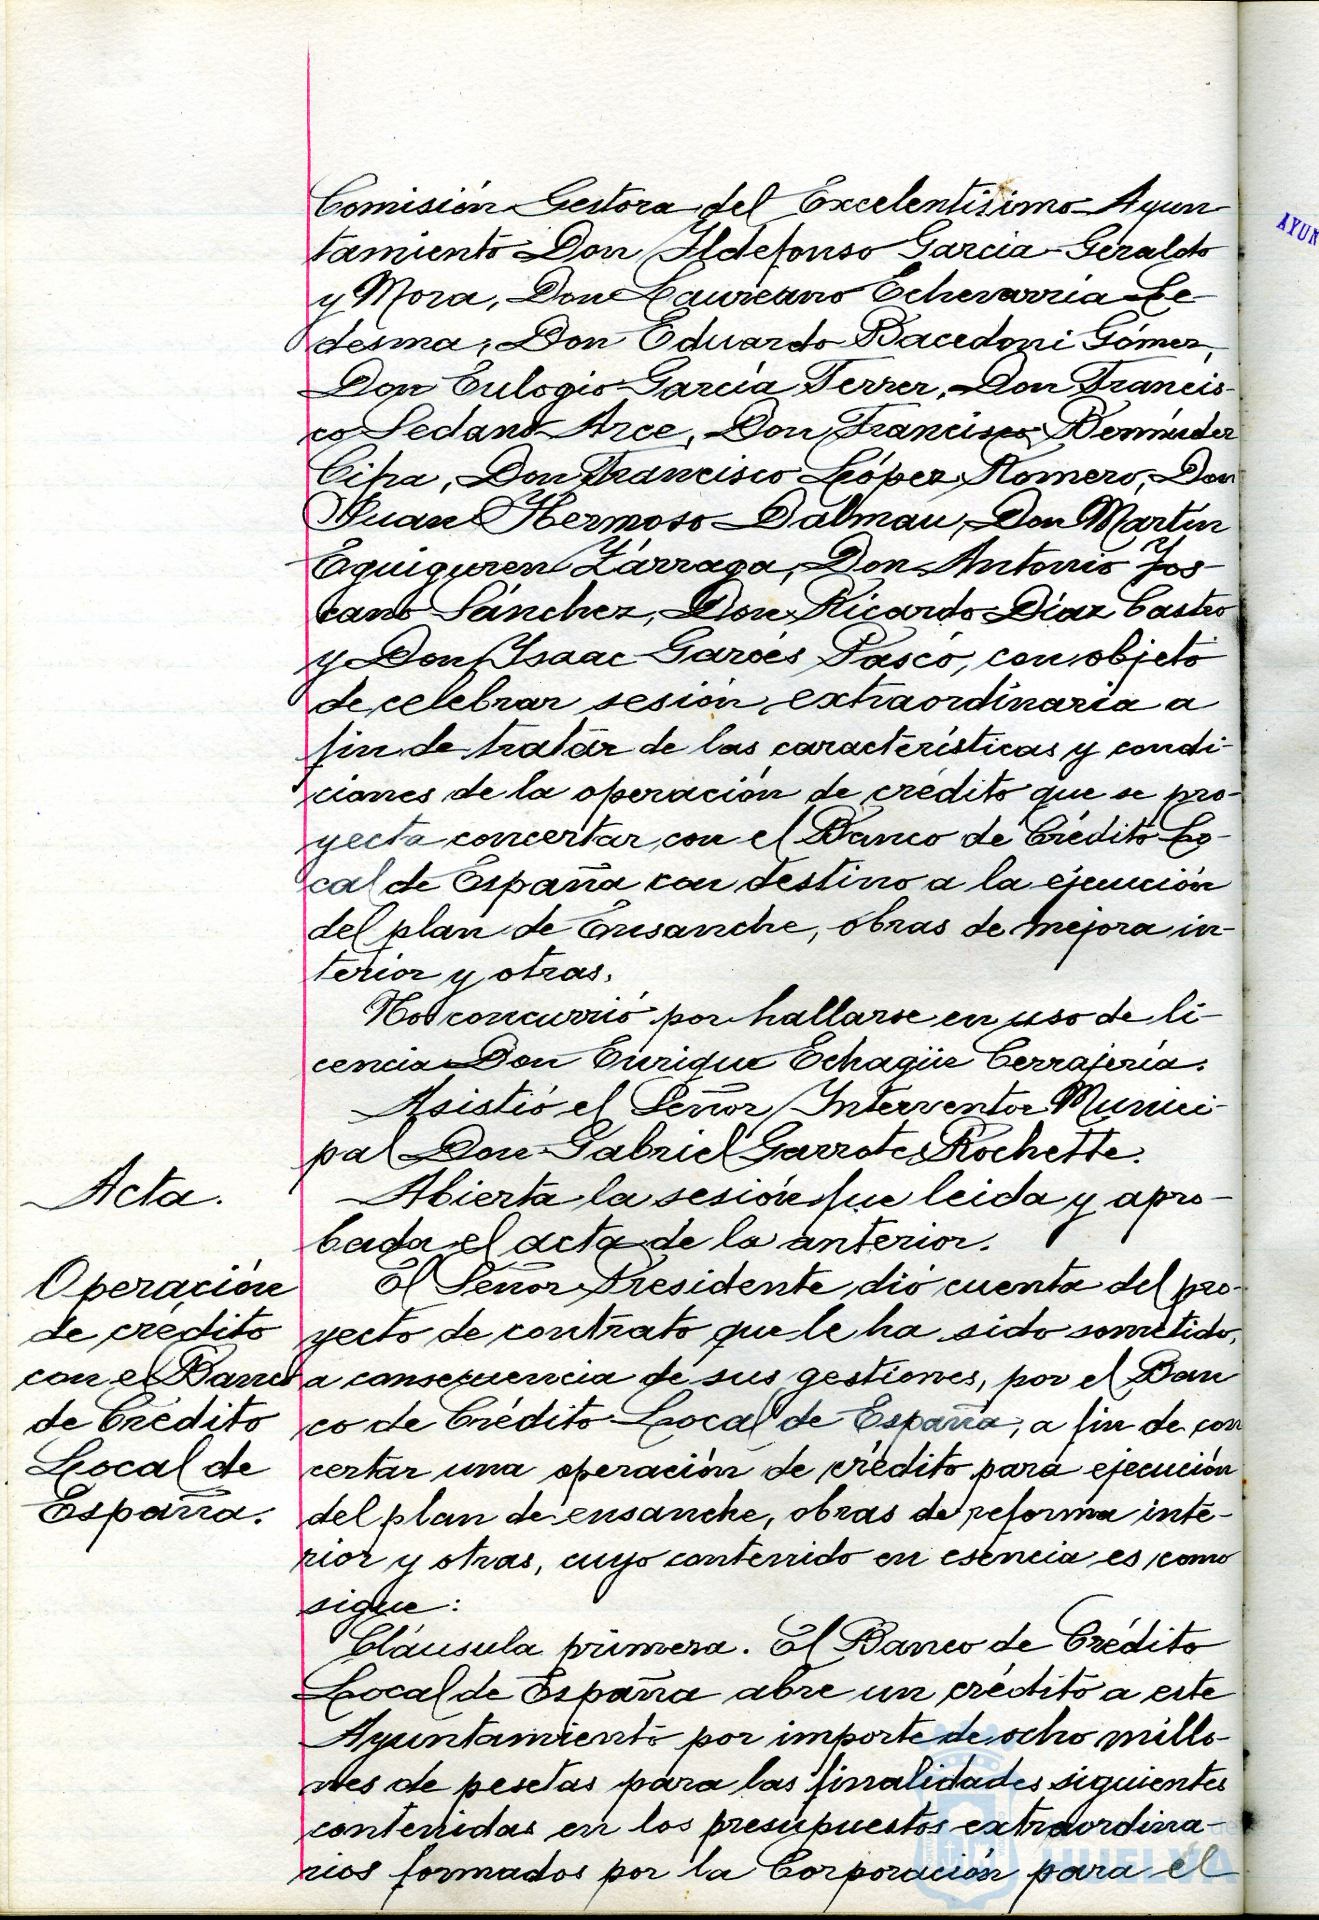 Comisión Gestora del Excelentísimo Ayun
tamiento Don Ildefonso Garcia-Geraldo
y Mora, Don Laureano Echevarría Le-
desma, Don Eduardo Bacedoni Gómez,
Don Eulogio García Ferrer, Don Francis-
co Sedano Arce, Don Francisco Bermúdez
Cifra, Don Francisco López Romero, Don
Juan Hermoso Dalmau, Don Martín
Eguiguren Zárraga, Don Antonio Jos-
cano Sánchez, Don Ricardo Díaz Castro
y Don Isaac Garcés Pascó, con objeto
de celebrar sesión extraordinaria a
fin de tratar de las características y condi-
ciones de la operación de crédito que se pro-
yecta concertar con el Banco de Crédito Lo-
cal de España con destino a la ejecución
del plan de Ensanche, obras de mejora in-
terior y otras.
No concurrió por hallarse en uso de li-
cencia Don Enrique Echagüe Cerrajería.
Asistió el Señor Interventor Munici-
pal Don Gabriel Garrote Rochette.
Acta.
Abierta la sesión fue leida y apro-
bada el acta de la anterior.
Operación
de crédito
con el Banco
de Crédito
Local de
España.
El Señor Presidente dió cuenta del pro-
yecto de contrato que le ha sido sometido,
a consecuencia de sus gestiones, por el Ban
co de Crédito Local de España, a fin de con
certar una operación de crédito para ejecución
del plan de ensanche, obras de reforma inte-
rior y otras, cuyo contenido en esencia es como
sigue:
Cláusula primera. El Banco de Crédito
Local de España abre un crédito a este
Ayuntamiento por importe de ocho millo-
nes de pesetas para las finalidades siguientes
contenidas en los presupuestos extraordina-
rios formados por la Corporación para el
AYUN
HUELVA